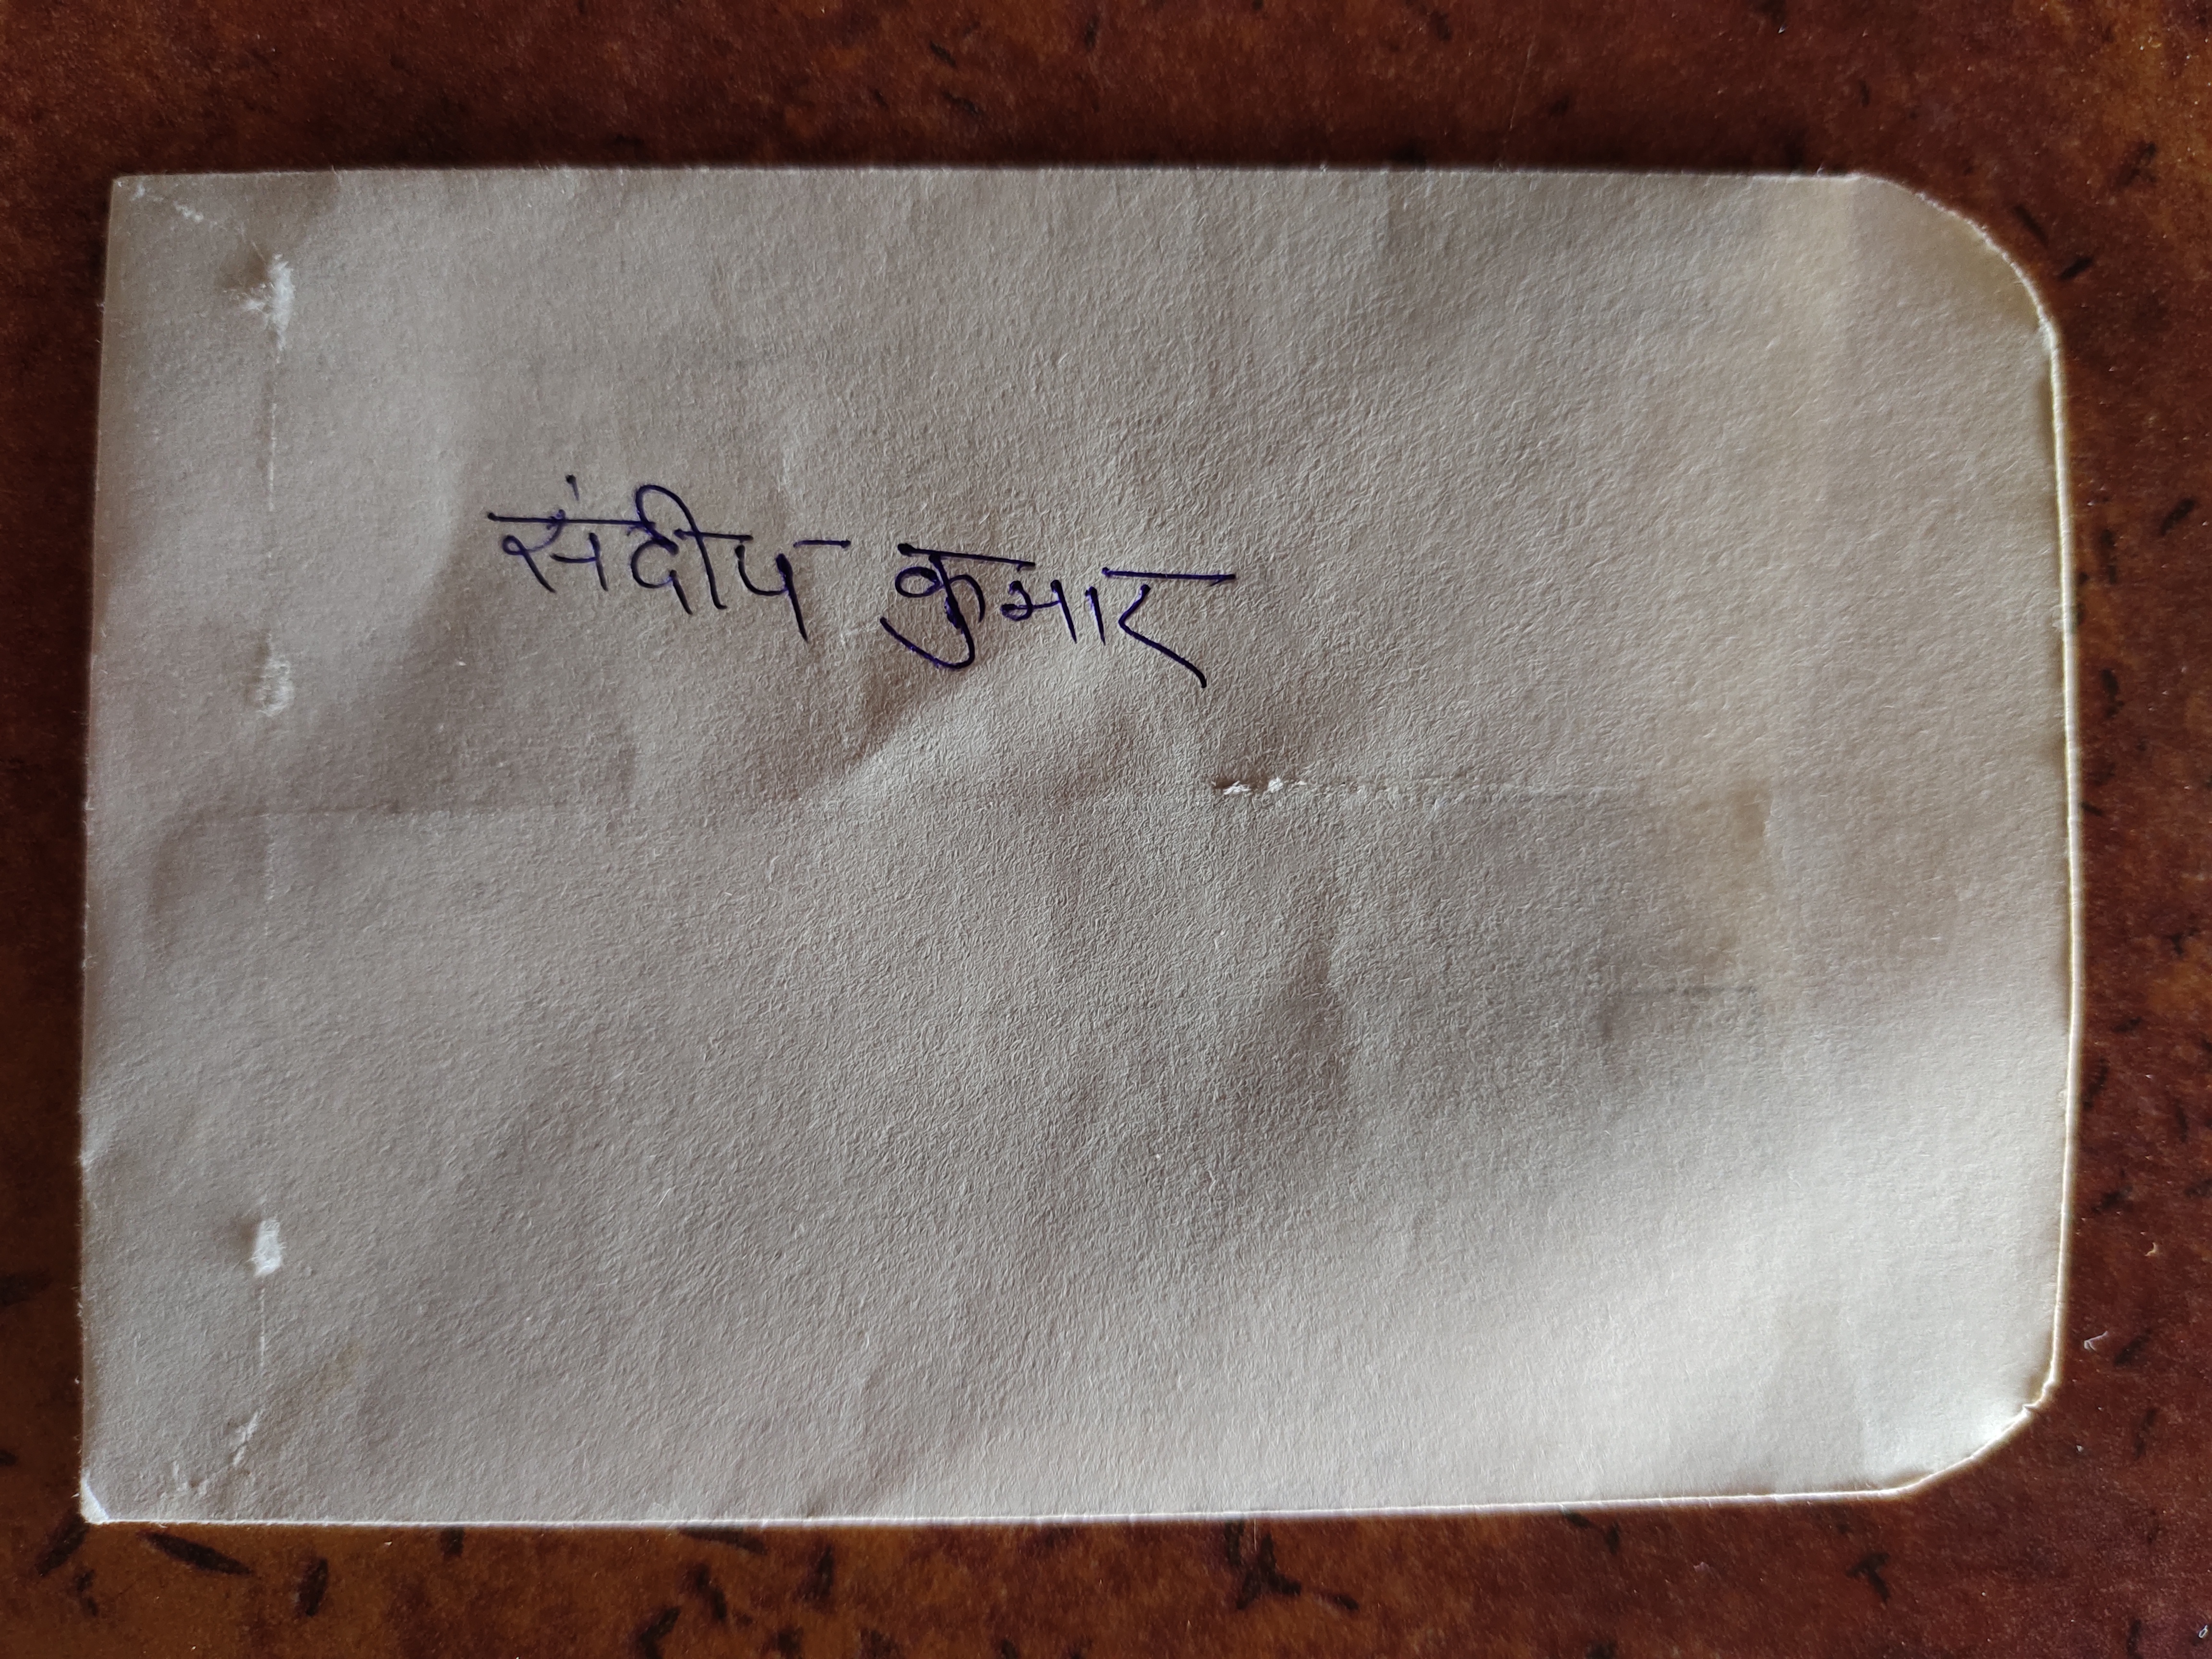 संदीप कुमार